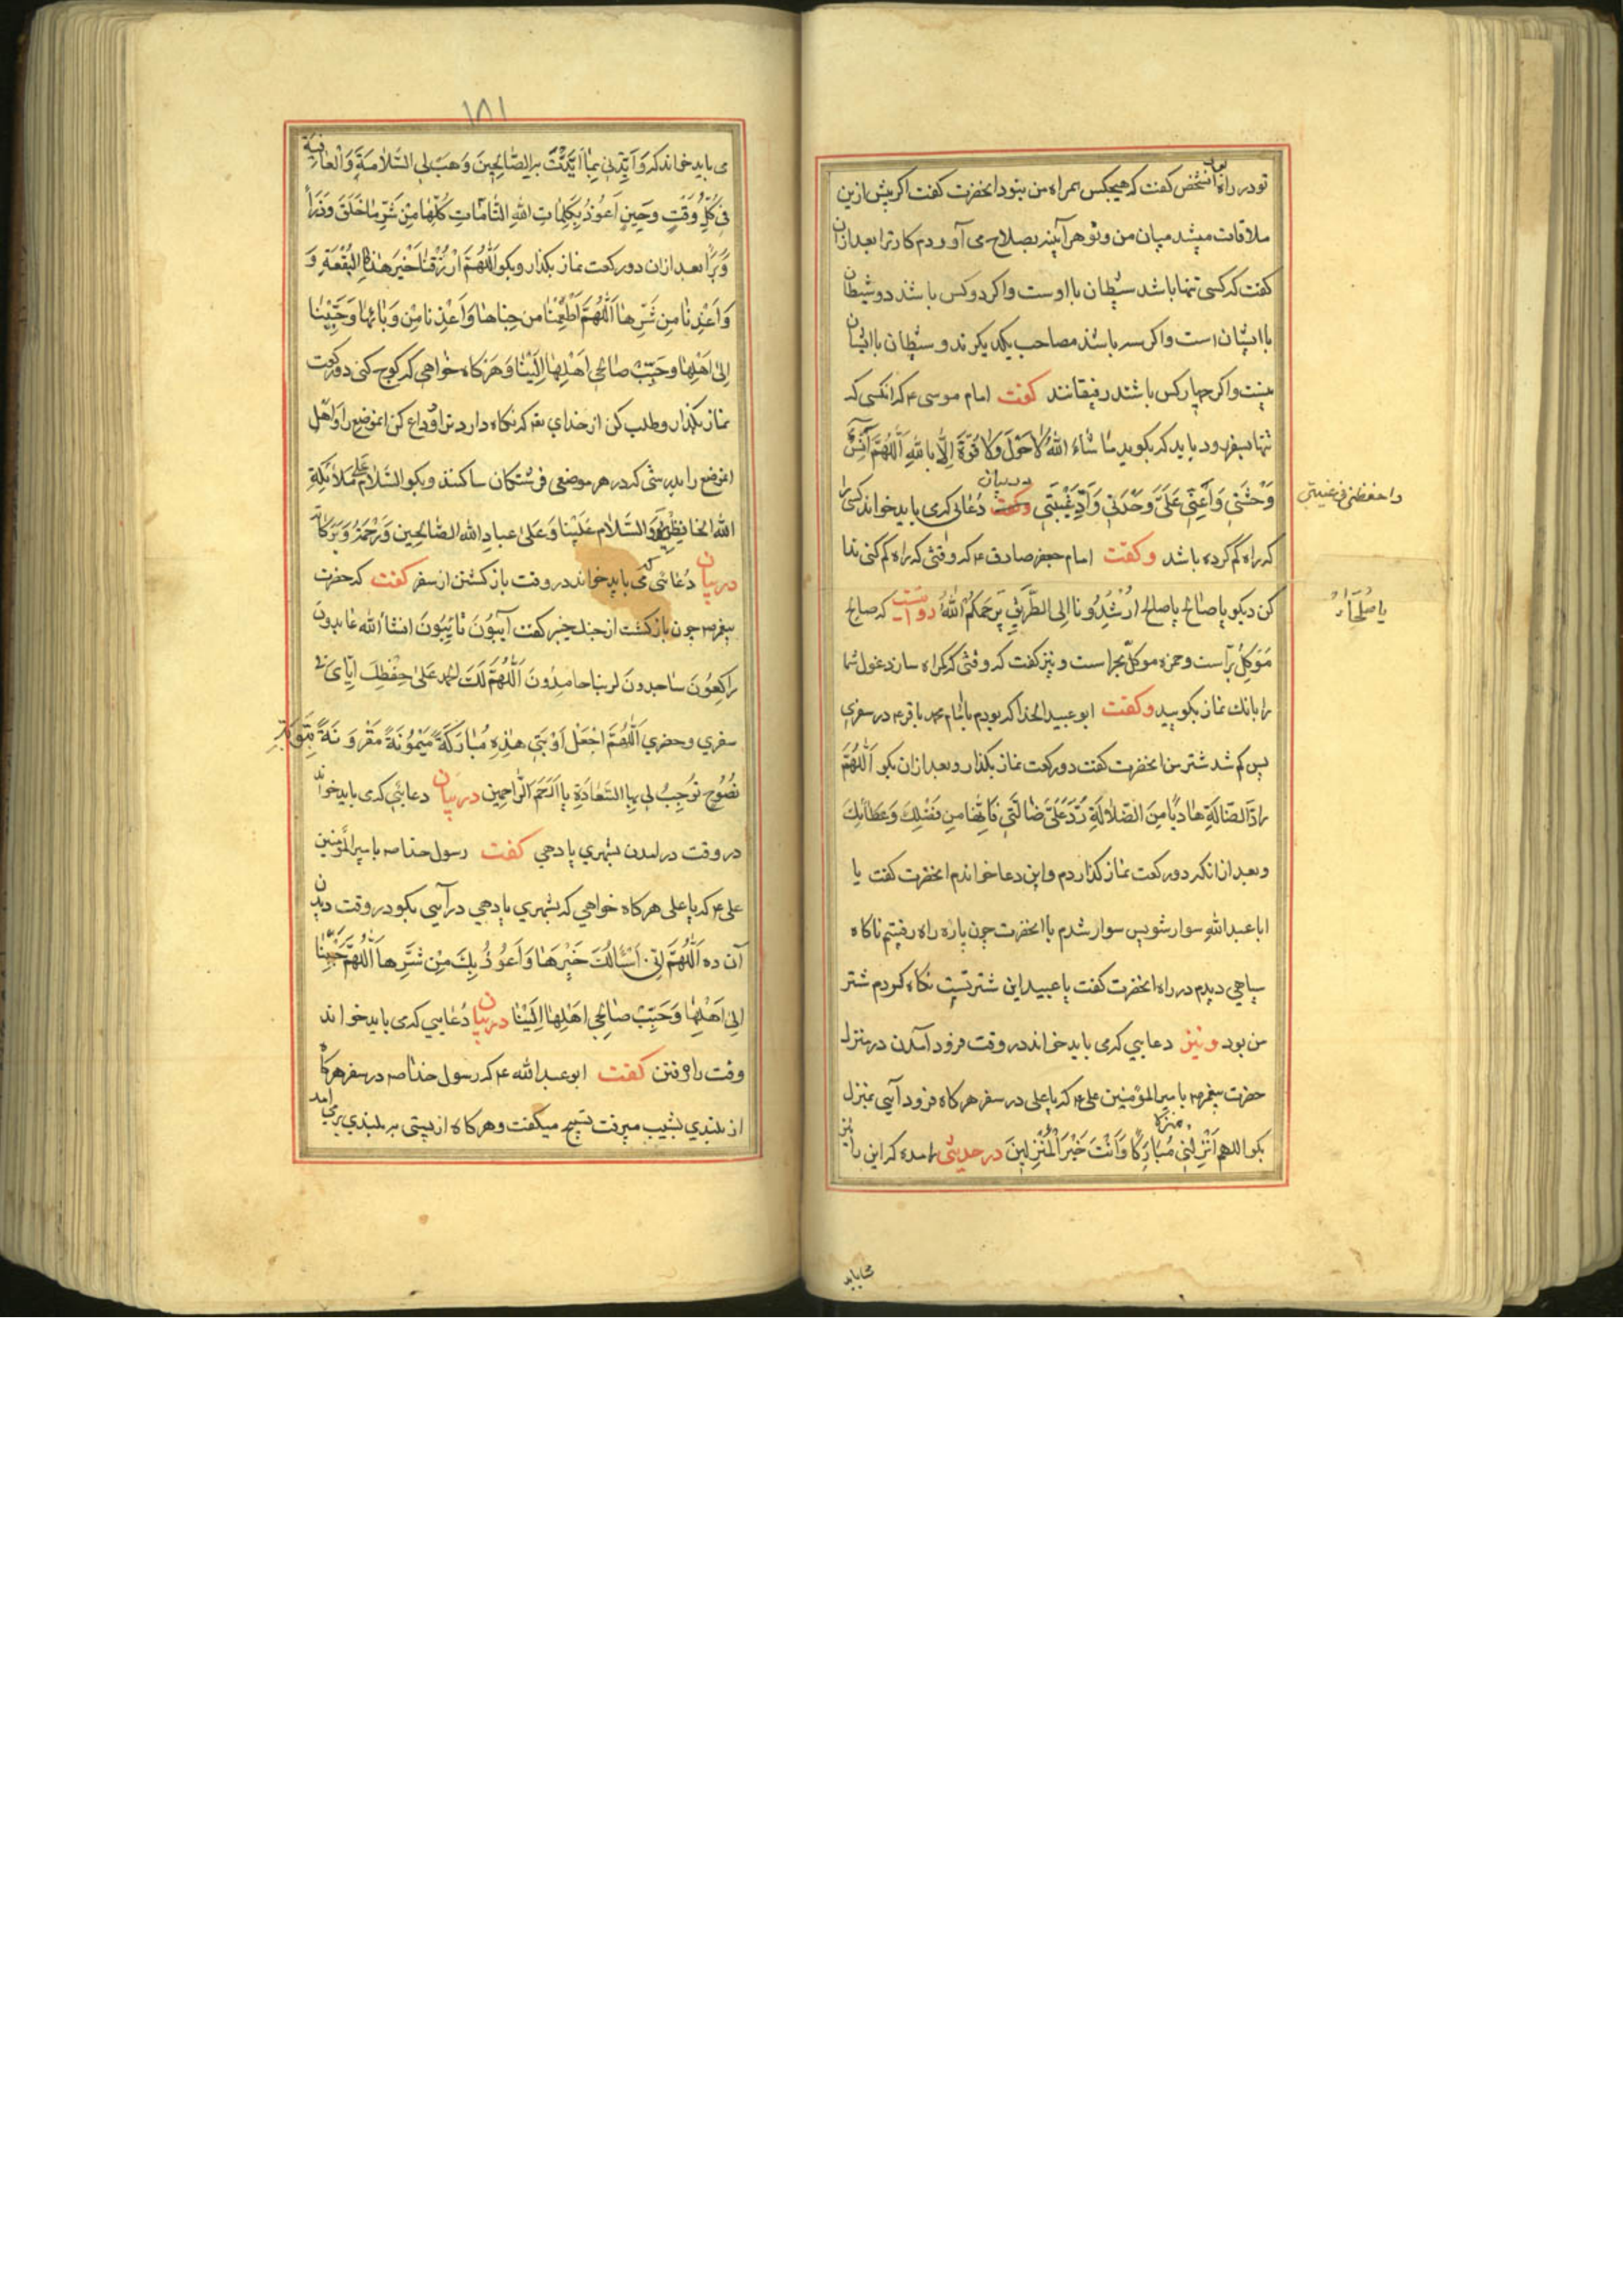 تو در راه بود آنشخص گفت که هیچکس همراه من نبود انحضرت گفت اگر پیش ازین
ملاقات میشد میان من و تو هر آینه بصلاح می آوردم کار ترا بعد ازان
گفت که کسی تنها باشد شیطان با اوست و اگر دو کس باشند دو شیطان
با ایشان است و اگر سه باشند مصاحب یکدیکرند و شیطان با ایشان
نیست و اگر چهار کس باشند رفیقانند گفت امام موسی ع که انکسی که
تنها بسفر رود باید که بکوید مَا شَاءَ اللّٰهُ لَا حَوْلَ وَلَا قُوَّةَ اِلَّا بِاللّٰهِ اَللّٰهُمَّ آنِسْ
وَحْشَتی وَاَعِنّی عَلیٰ وَحْدَتی وَاَدِّ غَیْبَتی در بیان دُعائی که می باید خواند کسی را
واحفظنی فی غیبتی
که راه گم کرده باشد وگفت امام جعفر صادق ع که وقتی که راه گم کنی ندا
کن و بکو یا صالح یا صالح اَرْشِدُونا اِلَی الطَّریقِ یَرْحَمُکُمُ اللّٰهُ روایتست که صالح
یا صُلَحَاءُ
مُوَکِّل بَرّ است و حمزه موکّل بحر است و نیز گفت که وقتی که گمراه سازد غول شما
را بانك نماز بکویید وگفت ابو عبید الحذا که بودم با امام محمد باقر ع در سفری
پس گم شد شتر من انحضرت گفت دو رکعت نماز بکذار و بعد ازان بکو اَللّٰهُمَّ
رادَّ الضّالَّةِ هادیًا مِنَ الضَّلالَةِ رُدَّ عَلَیَّ ضالَّتی فَاِنَّها مِن فَضْلِكَ وَعَطائِكَ
و بعد از انکه دو رکعت نماز گذاردم و این دعا خواندم انحضرت گفت یا
ابا عبد اللّٰه سوار شو پس سوار شدم با انحضرت چون پاره راه رفتیم ناکاه
سیاهی دیدم در راه انحضرت گفت یا عبید این شتر تست نکاه کردم شتر
من بود ونیز دعایی که می باید خواند در وقت فرود آمدن در منزل
حضرت پیغمبر ص با امیر المؤمنین علی ع که یا علی در سفر هر کاه فرود آیی بمنزل
بکو اللهم اَنْزِلْنی مُنْزَلًا مُبارَکًا وَاَنْتَ خَیْرُ الْمُنْزِلینَ در حدیثی آمده که این را نیز
می باید
۱۸۱
می باید خواند که وَاَیِّدْنی بِما اَیَّدْتَ بِهِ الصّالِحینَ وَهَبْ لِی السَّلامَةَ وَالْعافِیَةَ
فی کُلِّ وَقْتٍ وَحینٍ اَعُوذُ بِکَلِماتِ اللّٰهِ التّامّاتِ کُلِّها مِنْ شَرِّ ما خَلَقَ وَذَرَأَ
وَبَرَأَ بعد ازان دو رکعت نماز بکذار و بکو اَللّٰهُمَّ ارْزُقْنا خَیْرَ هٰذِهِ الْبُقْعَةِ وَ
وَاَعِذْنا مِن شَرِّها اَللّٰهُمَّ اَطْعِمْنا مِن جَناها وَاَعِذْنا مِنْ وَبائِها وَحَبِّبْنا
اِلیٰ اَهْلِها وَحَبِّبْ صالِحی اَهْلِها اِلَیْنا وَهرکاه خواهی که کوچ کنی دو رکعت
نماز بکذار و طلب کن از خدای تع که نکاه دارد ترا و وداع کن انموضع را و اهل
انموضع را بدرستی که در هر موضعی فرشتکان ساکنند و بکو السَّلامُ عَلیٰ مَلائِکَةِ
اللّٰهِ الحافِظینَ وَالسَّلامُ عَلَیْنا وَعَلیٰ عِبادِ اللّٰهِ الصّالِحین وَرَحْمَةُ وَبَرَکاتُه
در بیان دُعائی که می باید خواند در وقت باز کشتن از سفر گفت که حضرت
پیغمبر ص چون باز کشت از جنك خیبر گفت آیِبُونَ تائِبُونَ انشاء اللّٰه عابِدونَ
راکِعُونَ ساجِدونَ لربنا حامِدُونَ اَللّٰهُمَّ لَكَ الحمد عَلیٰ حِفْظِكَ اِیّایَ فی
سفری وحضری اَللّٰهُمَّ اجْعَلْ اَوْبَتی هٰذِهِ مُبارَکَةً مَیْمُونَةً مَقْرُونَةً بِتَوْبَةٍ
نَصُوحٍ تُوجِبُ لی بِهَا السَّعادَةَ یا اَرْحَمَ الرّاحِمین در بیان دعایی که می باید خواند
در وقت در امدن بشهری یا دهی گفت رسول خدا ص با امیر المؤمنین
علی ع که یا علی هر کاه خواهی که بشهری یا دهی در آیی بکو در وقت دیدن
آن ده اَللّٰهُمَّ اِنّی اَسْئَالُكَ خَیْرَها وَاَعُوذُ بِكَ مِنْ شَرِّها اَللّٰهُمَّ حَبِّبْنا
اِلیٰ اَهْلِها وَحَبِّبْ صالِحی اَهْلِها اِلَیْنا در بیان دُعایی که می باید خواند
وقت راه رفتن گفت ابو عبد اللّٰه ع که رسول خدا ص در سفر هرکاه
از بلندی بشیب میرفت تسبیح میکفت و هر کاه از پستی بر بلندی برمی آمد